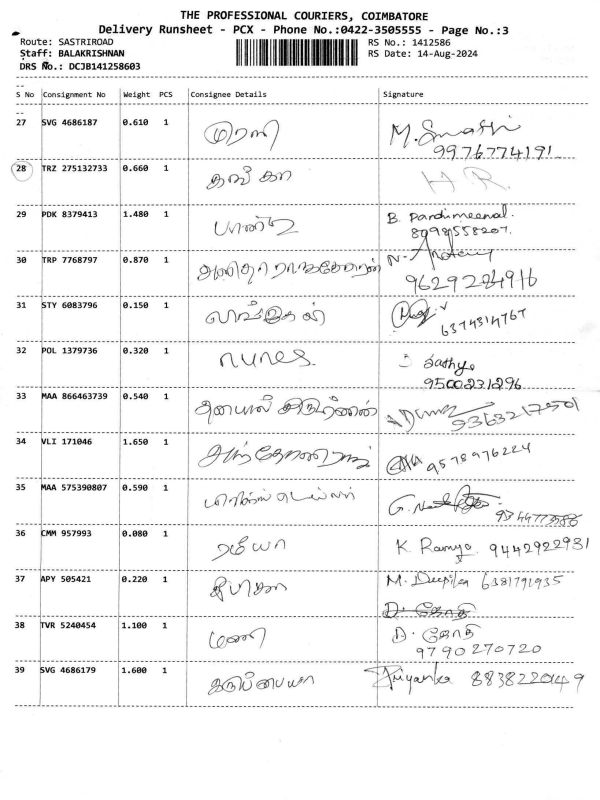 THE PROFESSIONAL COURIERS, COIMBATORE
Delivery Runsheet - PCX - Phone No.:0422-3505555 - Page No.:3
Route: SASTRIROAD RS No.: 1412586
Staff: BALAKRISHNAN RS Date: 14-Aug-2024
DRS No.: DCJB141258603
S No Consignment No Weight PCS Consignee Details Signature
27 SVG 4686187 0.610 1 முரளி
9976774191
28 TRZ 275132733 0.660 1 H R.
29 PDK 8379413 1.480 1 பாண்டி B. Pandimeenal.
30 TRP 7768797 0.870 1
9629284916
31 STY 6083796 0.150 1
6374314767
32 POL 1379736 0.320 1 Sathya
9500231296
33 MAA 866463739 0.540 1
9363217501
34 VLI 171046 1.650 1 9578976224
35 MAA 575390807 0.590 1
36 CMM 957993 0.080 1 ரம்யா K. Ramya 9442922931
37 APY 505421 0.220 1 தீபிகா M. Deepika 6381791935
D. ஜோதி
38 TVR 5240454 1.100 1 மணி D. ஜோதி
9790270720
39 SVG 4686179 1.600 1 கருப்பையா Priyanka 8838220149